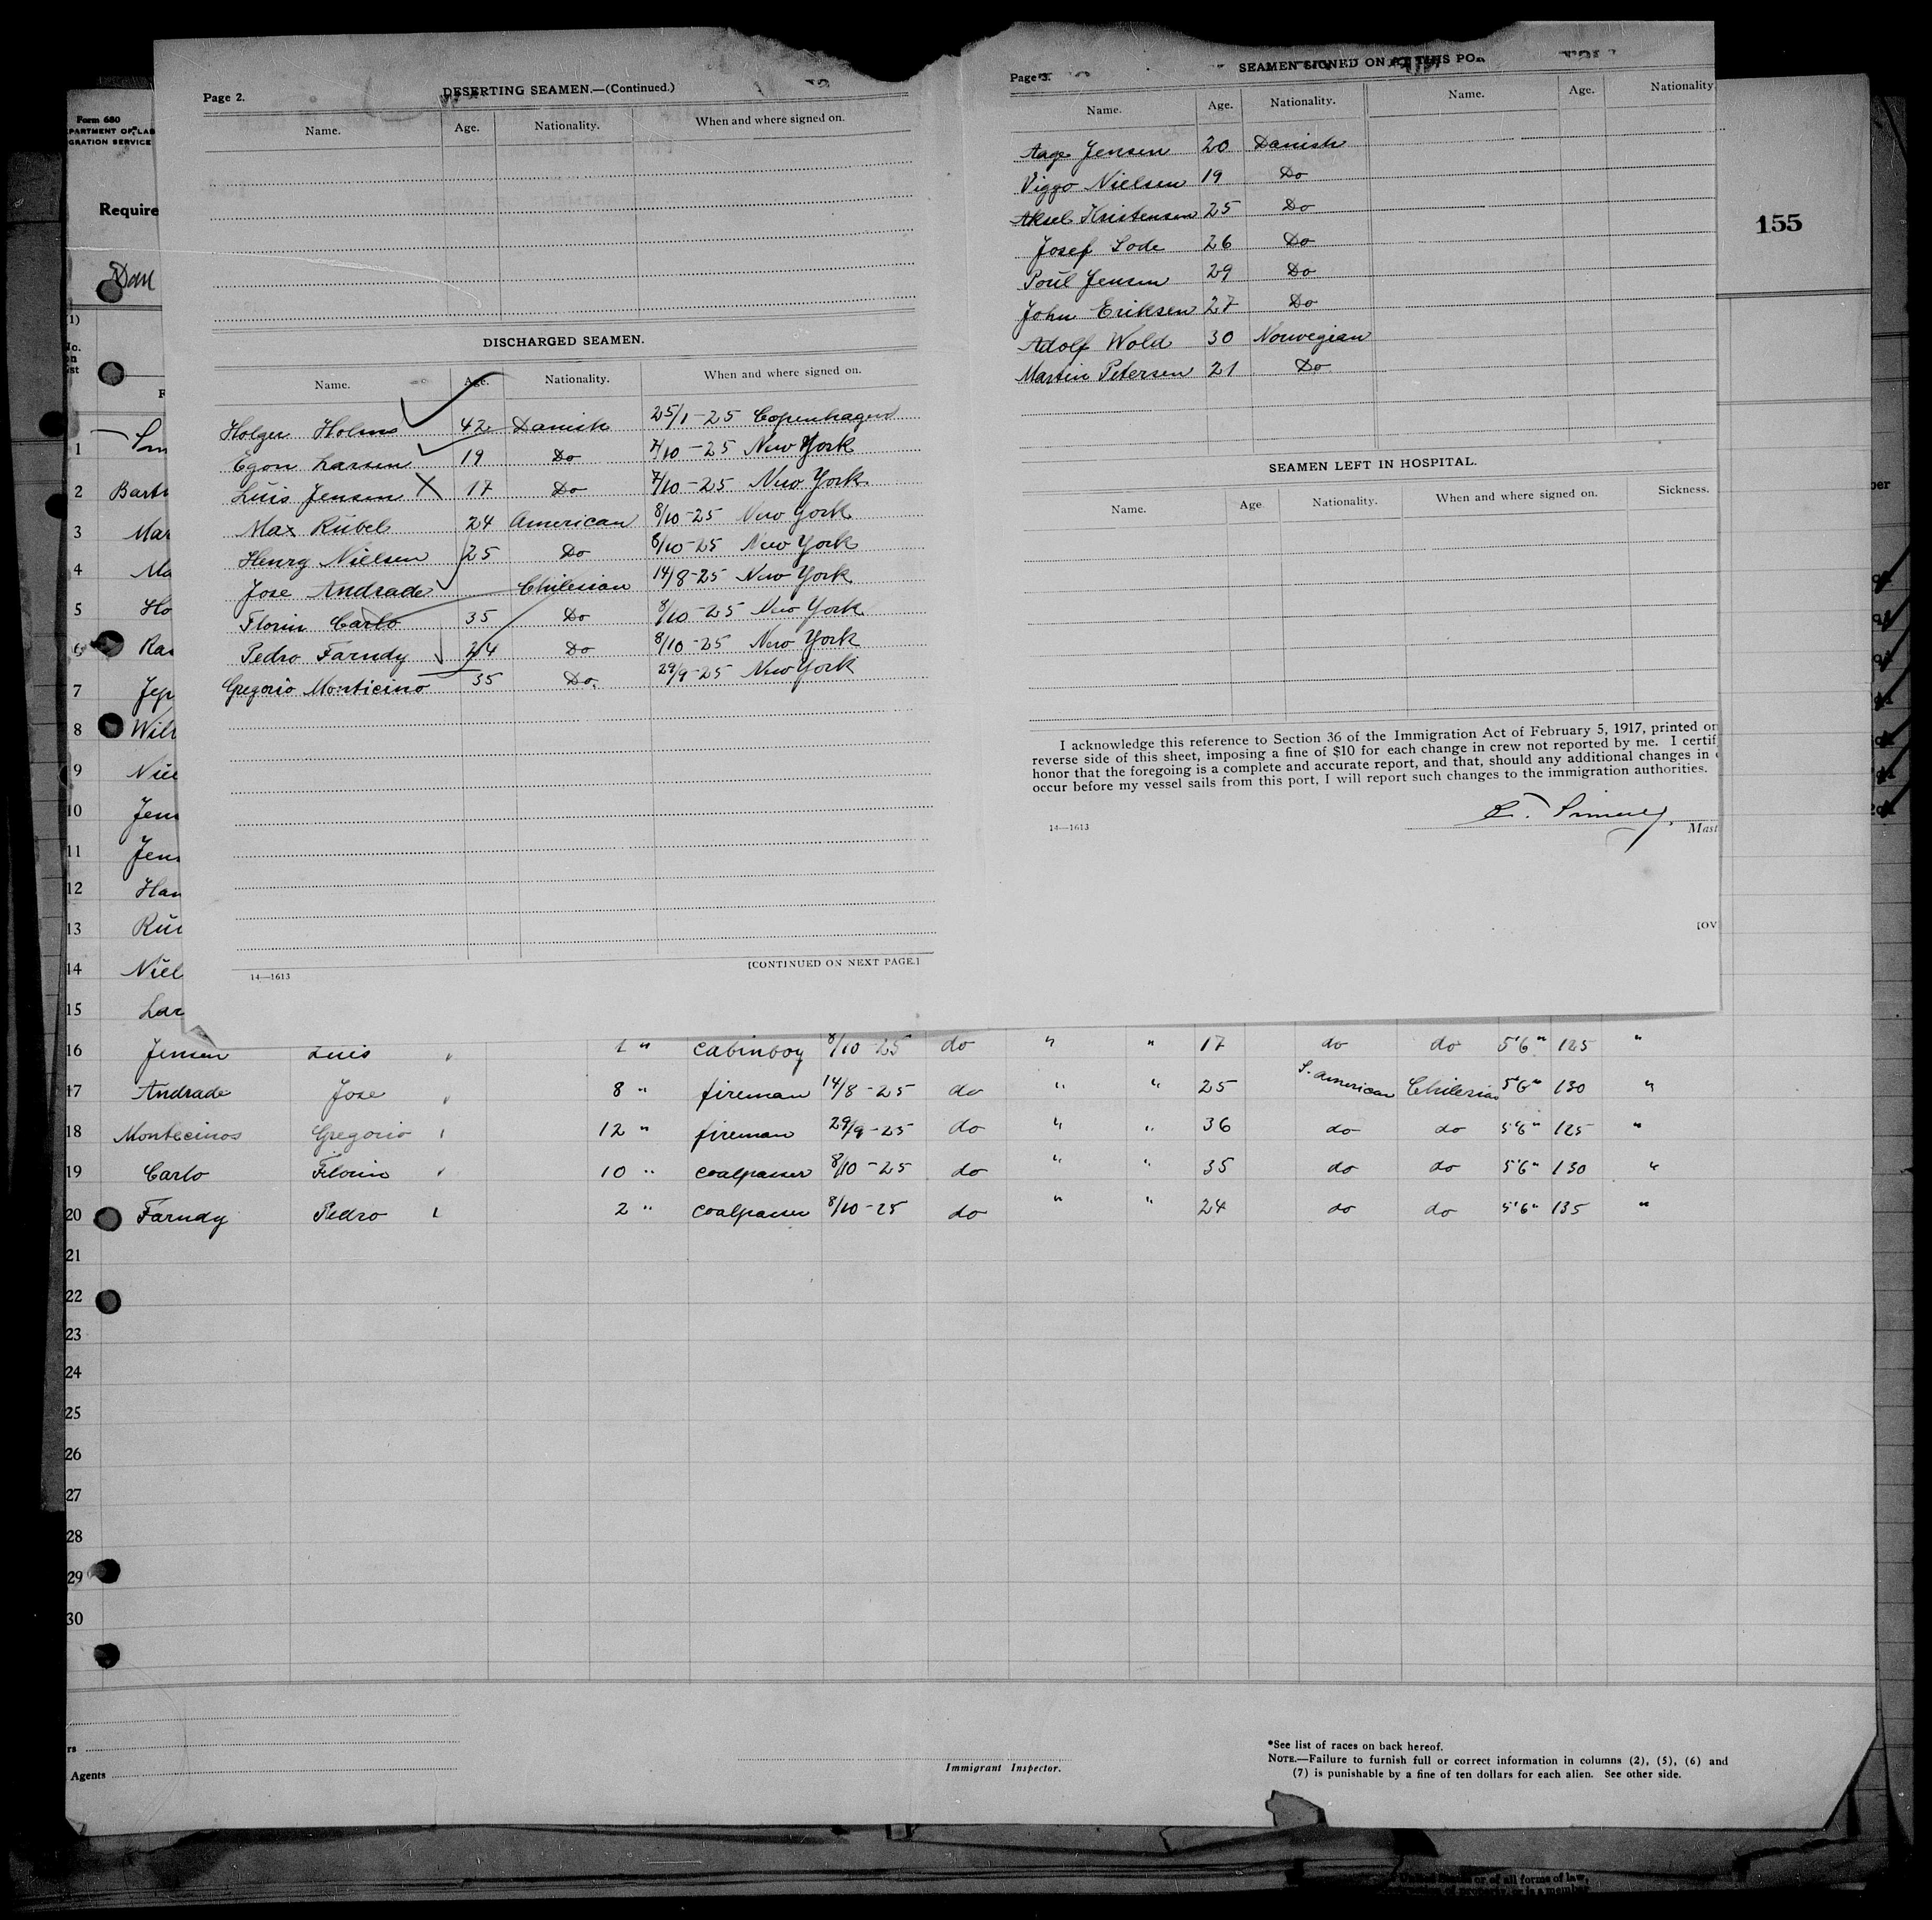 Page 2.
DESERTING SEAMEN.—(Continued.)
Name. Age. Nationality. When and where signed on.
DISCHARGED SEAMEN.
Name. Age. Nationality. When and where signed on.
Holger Holme 42 Danish 25/1-25 Copenhagen
Egon Larsen 19 Do 7/10-25 New York
Luis Jensen X 17 Do 7/10-25 New York
Max Rübel 24 American 8/10-25 New York
Henry Nielsen 25 Do 8/10-25 New York
Jose Andrade Chilesian 14/8-25 New York
Florin Carlo 35 Do 8/10-25 New York
Pedro Farndy 24 Do 8/10-25 New York
Gregorio Monticino 35 Do. 29/9-25 New York
14—1613
[CONTINUED ON NEXT PAGE.]
Page 3.
SEAMEN SIGNED ON AT THIS POR
Name. Age. Nationality. Name. Age. Nationality
Aage Jensen 20 Danish
Viggo Nielsen 19 Do
Aksel Kristensen 25 Do
Josef Lode 26 Do
Poul Jensen 29 Do
John Eriksen 27 Do
Adolf Wold 30 Norwegian
Martin Petersen 21 Do
SEAMEN LEFT IN HOSPITAL.
Name. Age Nationality. When and where signed on. Sickness.
I acknowledge this reference to Section 36 of the Immigration Act of February 5, 1917, printed on
reverse side of this sheet, imposing a fine of $10 for each change in crew not reported by me. I certif
honor that the foregoing is a complete and accurate report, and that, should any additional changes in
occur before my vessel sails from this port, I will report such changes to the immigration authorities.
14—1613
Mast
[OV
155
Form 680
PARTMENT OF LAB
GRATION SERVICE
Require
Dan
(1)
No.
on
ist
F
1 Sm
2 Bart
3 Mar
4 Ma
5 Ho
6 Ras
7 Jep
8 Wil
9 Niel
10 Jens
11 Jens
12 Han
13 Rüb
14 Niel
15 Lar
16 Jensen Luis 1 " cabinboy 8/10-25 do " " 17 do do 5'6" 125 "
17 Andrade Jose 8 " fireman 14/8-25 do " " 25 S. american Chilesian 5'6" 130 "
18 Montecinos Gregorio 12 " fireman 29/9-25 do " " 36 do do 5'6" 125 "
19 Carlo Florin 10 " coalpasser 8/10-25 do " " 35 do do 5'6" 130 "
20 Farndy Pedro 2 " coalpasser 8/10-25 do " " 24 do do 5'6" 135 "
21
22
23
24
25
26
27
28
29
30
rs
Agents
Immigrant Inspector.
*See list of races on back hereof.
NOTE.—Failure to furnish full or correct information in columns (2), (5), (6) and
(7) is punishable by a fine of ten dollars for each alien. See other side.
ber
or of all forms of law,